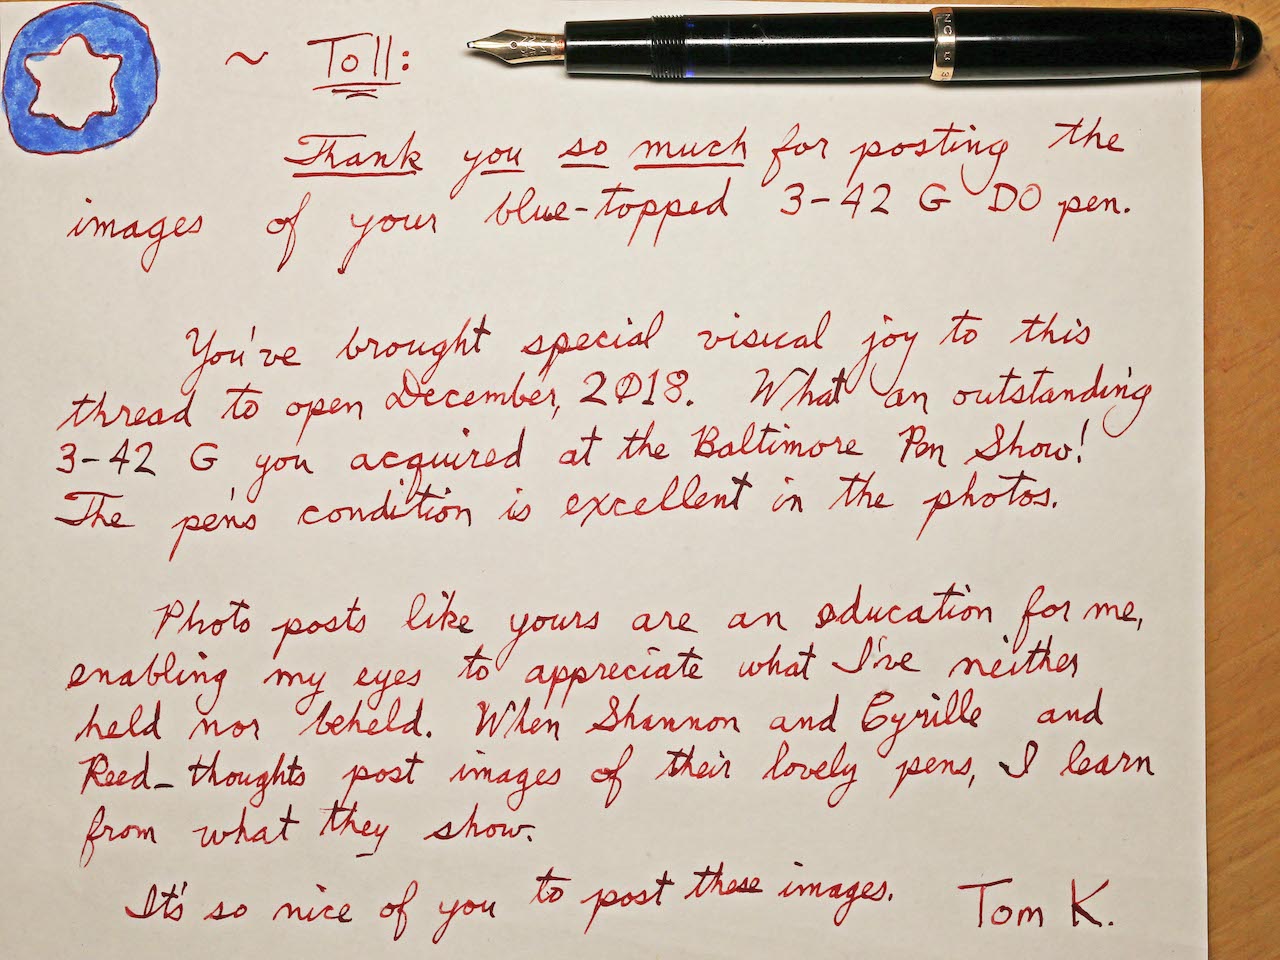 ~ Toll:
Thank you so much for posting the
images of your blue-topped 3-42 G DO pen.
You've brought special visual joy to this
thread to open December, 2018. What an outstanding
3-42 G you acquired at the Baltimore Pen Show!
The pen's condition is excellent in the photos.
Photo posts like yours are an education for me,
enabling my eyes to appreciate what I've neither
held nor beheld. When Shannon and Cyrille and
Reed_thoughts post images of their lovely pens, I learn
from what they show.
It's so nice of you to post these images. Tom K.